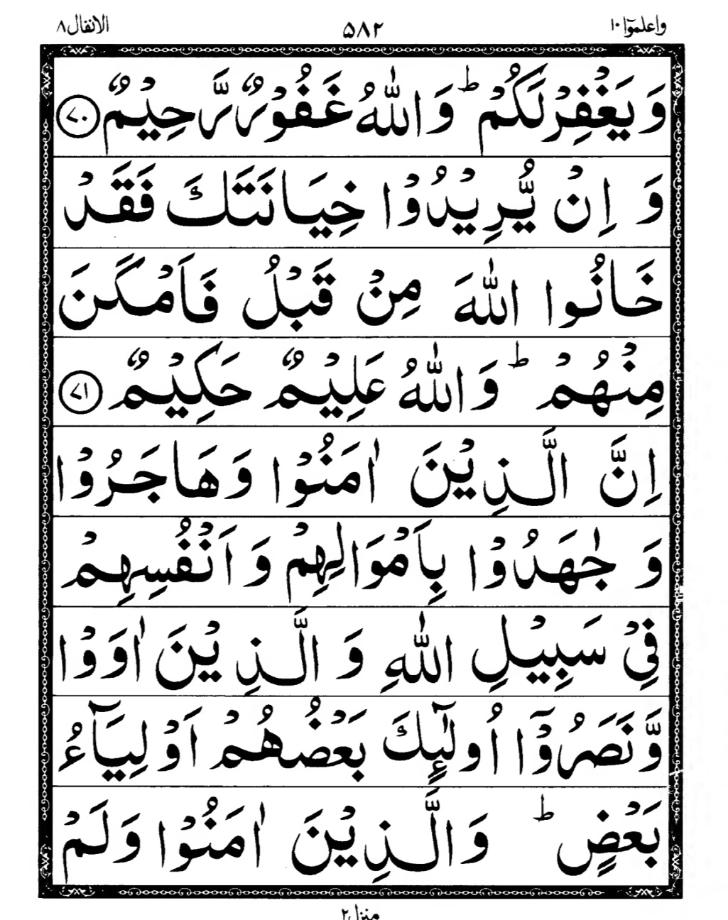 واعلموٓا ١٠ ٥٨٢ الانفال ٨
وَيَغْفِرْلَكُمْ ؕ وَاللّٰهُ غَفُوْرٌ رَّحِيْمٌ ﴿٧٠﴾
وَ اِنْ يُّرِيْدُوْا خِيَانَتَكَ فَقَدْ
خَانُوا اللّٰهَ مِنْ قَبْلُ فَاَمْكَنَ
مِنْهُمْ ؕ وَاللّٰهُ عَلِيْمٌ حَكِيْمٌ ﴿٧١﴾
اِنَّ الَّذِيْنَ اٰمَنُوْا وَهَاجَرُوْا
وَ جٰهَدُوْا بِاَمْوَالِهِمْ وَ اَنْفُسِهِمْ
فِيْ سَبِيْلِ اللّٰهِ وَ الَّذِيْنَ اٰوَوْا
وَّنَصَرُوْٓا اُولٰٓئِكَ بَعْضُهُمْ اَوْلِيَآءُ
بَعْضٍ ؕ وَالَّذِيْنَ اٰمَنُوْا وَلَمْ
منزل ٢